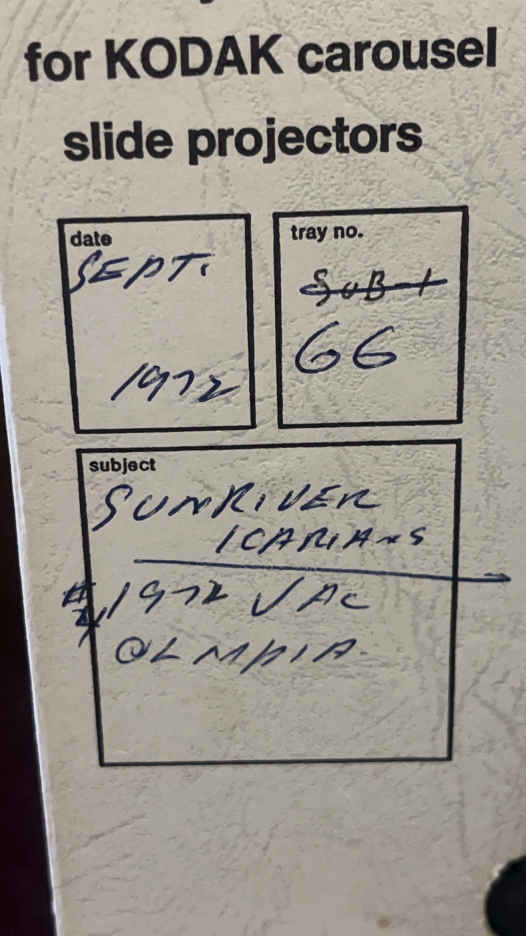 for KODAK carousel
slide projectors
date
SEPT.
1972
tray no.
SUB-1
66
subject
SUNRIVER
ICARIANS
#4 1972 VAC
OLMPIA